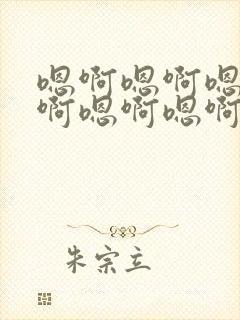 嗯啊嗯啊嗯
啊嗯啊嗯啊
朱宗立